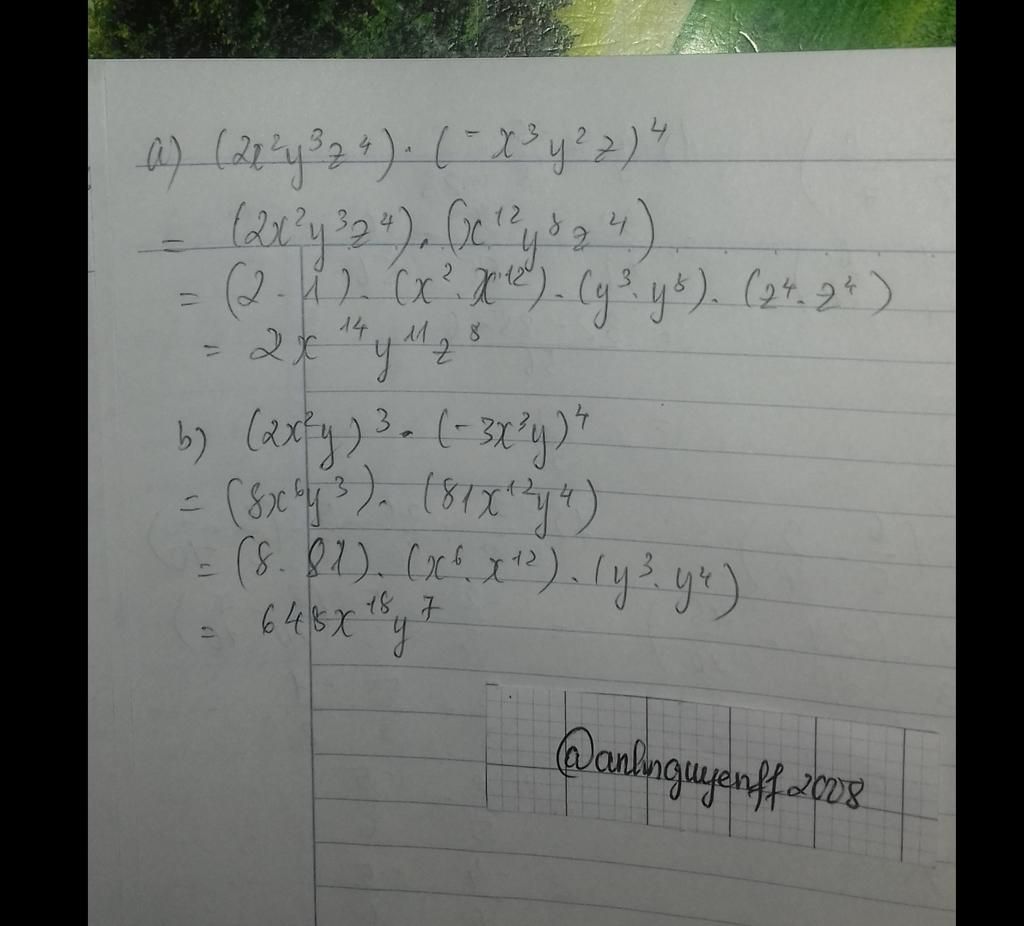 a) (2x²y³z⁴) . (-x³y²z)⁴
= (2x²y³z⁴) . (x¹²y⁸z⁴)
= (2 . 1) . (x² . x¹²) . (y³ . y⁸) . (z⁴ . z⁴)
= 2x¹⁴y¹¹z⁸
b) (2x²y)³ . (-3x³y)⁴
= (8x⁶y³) . (81x¹²y⁴)
= (8 . 81) . (x⁶ . x¹²) . (y³ . y⁴)
= 648x¹⁸y⁷
@anhnguyenff2008